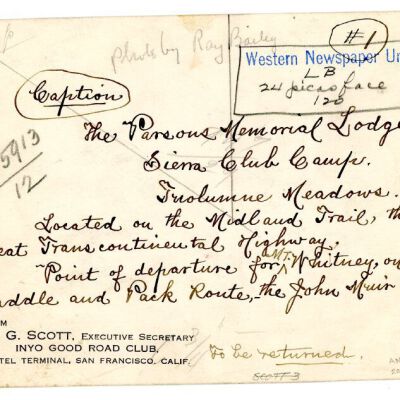 #1
Photo by Ray Bailey
Western Newspaper Un
LB
24 picas face
120
Caption
5913
12
The Parsons Memorial Lodge
Sierra Club Camp.
Tuolumne Meadows.
Located on the Midland Trail, th
eat Transcontinental Highway.
Point of departure for MT. Whitney, on
addle and Pack Route, the John Muir
OM
G. SCOTT, EXECUTIVE SECRETARY
INYO GOOD ROAD CLUB,
TEL TERMINAL, SAN FRANCISCO, CALIF.
To be returned.
SCOTT 3
AN
20